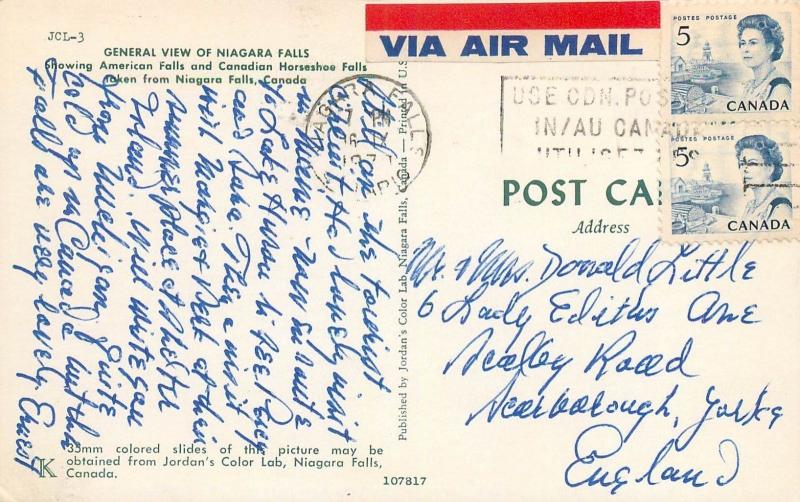 JCL-3
GENERAL VIEW OF NIAGARA FALLS
Showing American Falls and Canadian Horseshoe Falls
taken from Niagara Falls, Canada
VIA AIR MAIL
5
POSTES POSTAGE
CANADA
5
POSTES POSTAGE
CANADA
NIAGARA FALLS
USE CDN. POS
IN/AU CANAD
UTILISEZ
POST CA
Address
Mr. & Mrs. Donald Little
6 Lady Ediths Ave
Scalby Road
Scarborough, Yorks
England
on the tourist
Had lovely visit
in Muncie - now en route
to Lake Huron to see
and Jane. Then a visit
with Margie & at their
summer place at Shelter
Island. Will write you
from Michigan. Quite
cold up in Canada but the
Falls are very lovely. Ernest
Published by Jordan's Color Lab, Niagara Falls, Canada — Printed in U.S.
K
35mm colored slides of this picture may be
obtained from Jordan's Color Lab, Niagara Falls,
Canada.
107817